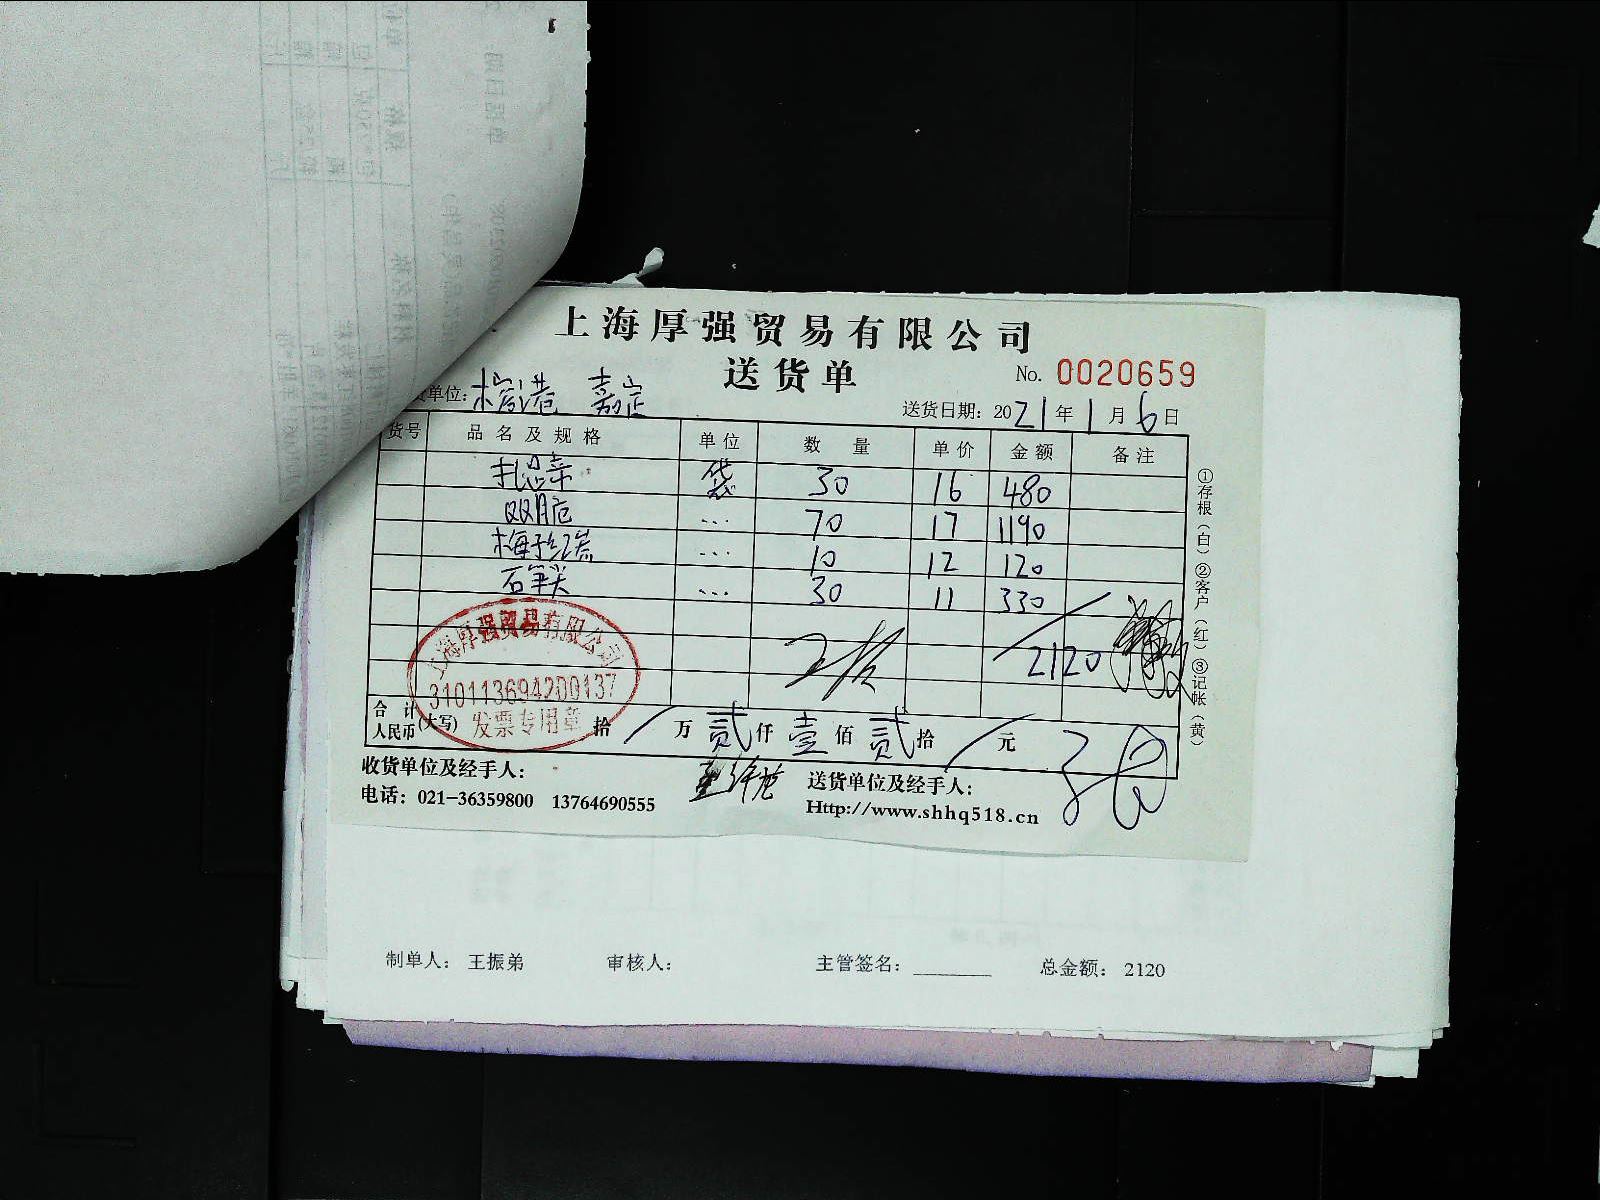 上海厚强贸易有限公司
送货单
No. 0020659
单位: 嘉定
送货日期: 2021年1月6日
货号 品名及规格 单位 数量 单价 金额 备注
袋 30 16 480
双脆 ... 70 17 1190
梅子 ... 10 12 120
石笋尖 ... 30 11 330
2120
上海厚强贸易有限公司
310113694200137
发票专用章
合计人民币(大写) 拾 / 万 贰 仟 壹 佰 贰 拾 / 元
收货单位及经手人:
送货单位及经手人:
电话: 021-36359800 13764690555
Http://www.shhq518.cn
①存根(白)②客户(红)③记帐(黄)
制单人: 王振弟 审核人: 主管签名: ________ 总金额: 2120